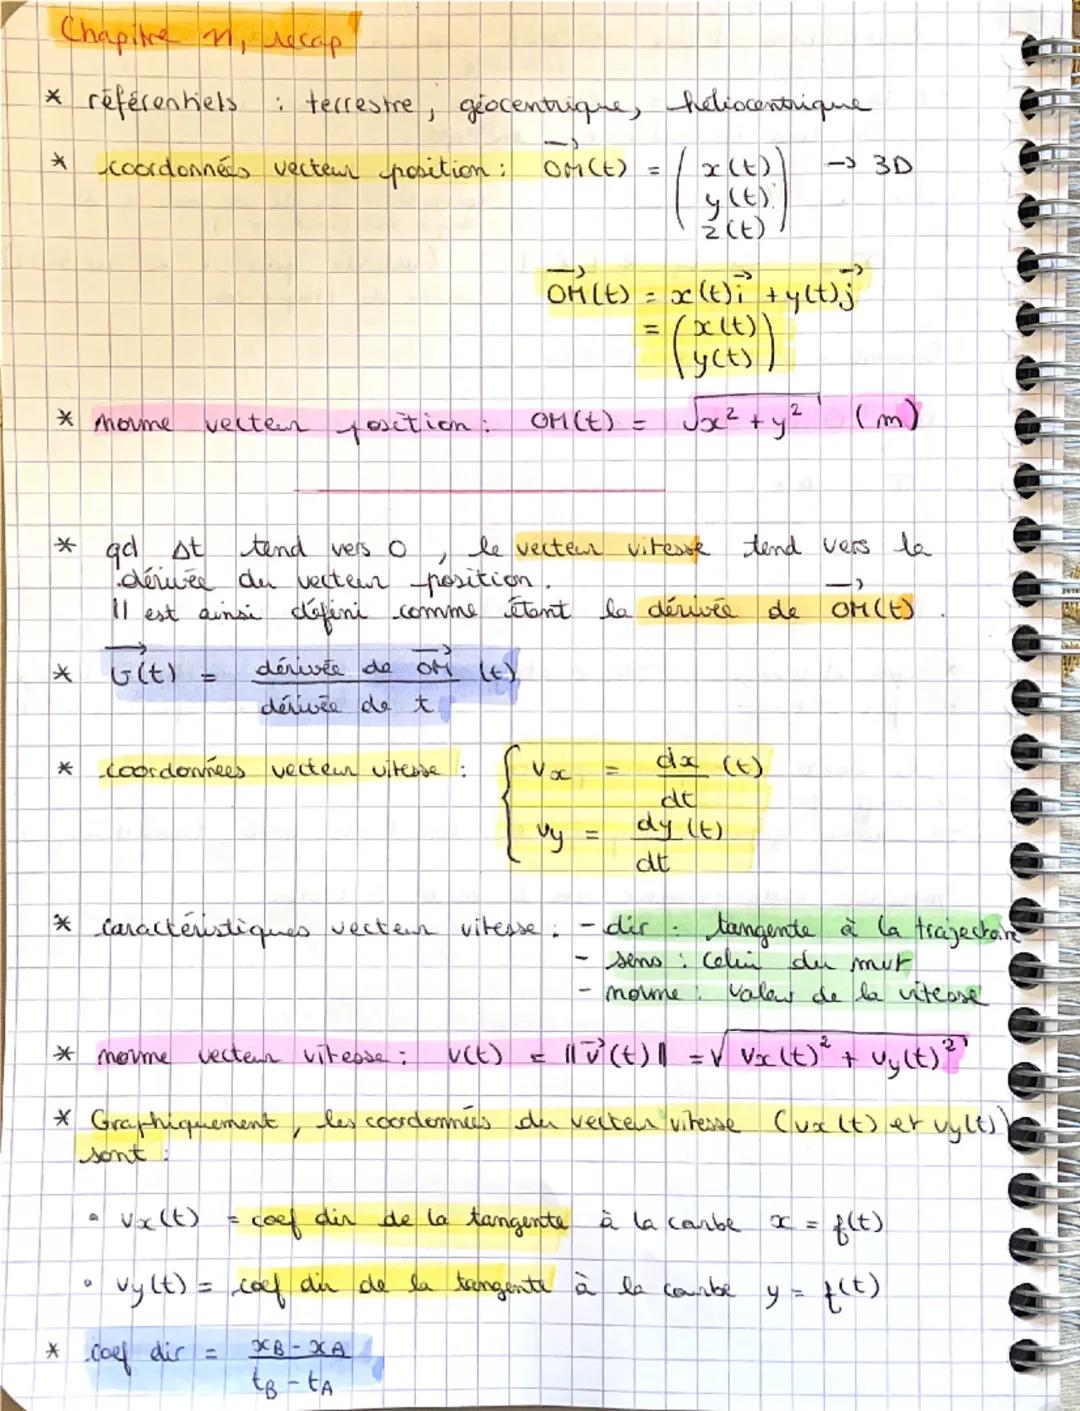 Chapitre 11, recap
* référentiels : terrestre, géocentrique, héliocentrique
* coordonnées vecteur position : OM(t) = ( x(t) y(t) z(t) ) → 3D
OM(t) = x(t)i + y(t)j
= ( x(t) y(t) )
* norme vecteur position : OM(t) = √x² + y² (m)
* qd Δt tend vers 0, le vecteur vitesse tend vers la
dérivée du vecteur position.
Il est ainsi défini comme étant la dérivée de OM(t).
* v(t) = dérivée de OM (t)
dérivée de t
* coordonnées vecteur vitesse : { vx = dx (t)
dt
vy = dy (t)
dt
* caractéristiques vecteur vitesse : - dir : tangente à la trajectoire
- sens : celui du mvt
- norme : valeur de la vitesse
* norme vecteur vitesse : v(t) = ||v(t)|| = √vx(t)² + vy(t)²
* Graphiquement, les coordonnées du vecteur vitesse (vx(t) et vy(t))
sont :
• vx(t) = coef dir de la tangente à la courbe x = f(t)
• vy(t) = coef dir de la tangente à la courbe y = f(t)
* coef dir = xB - xA
tB - tA